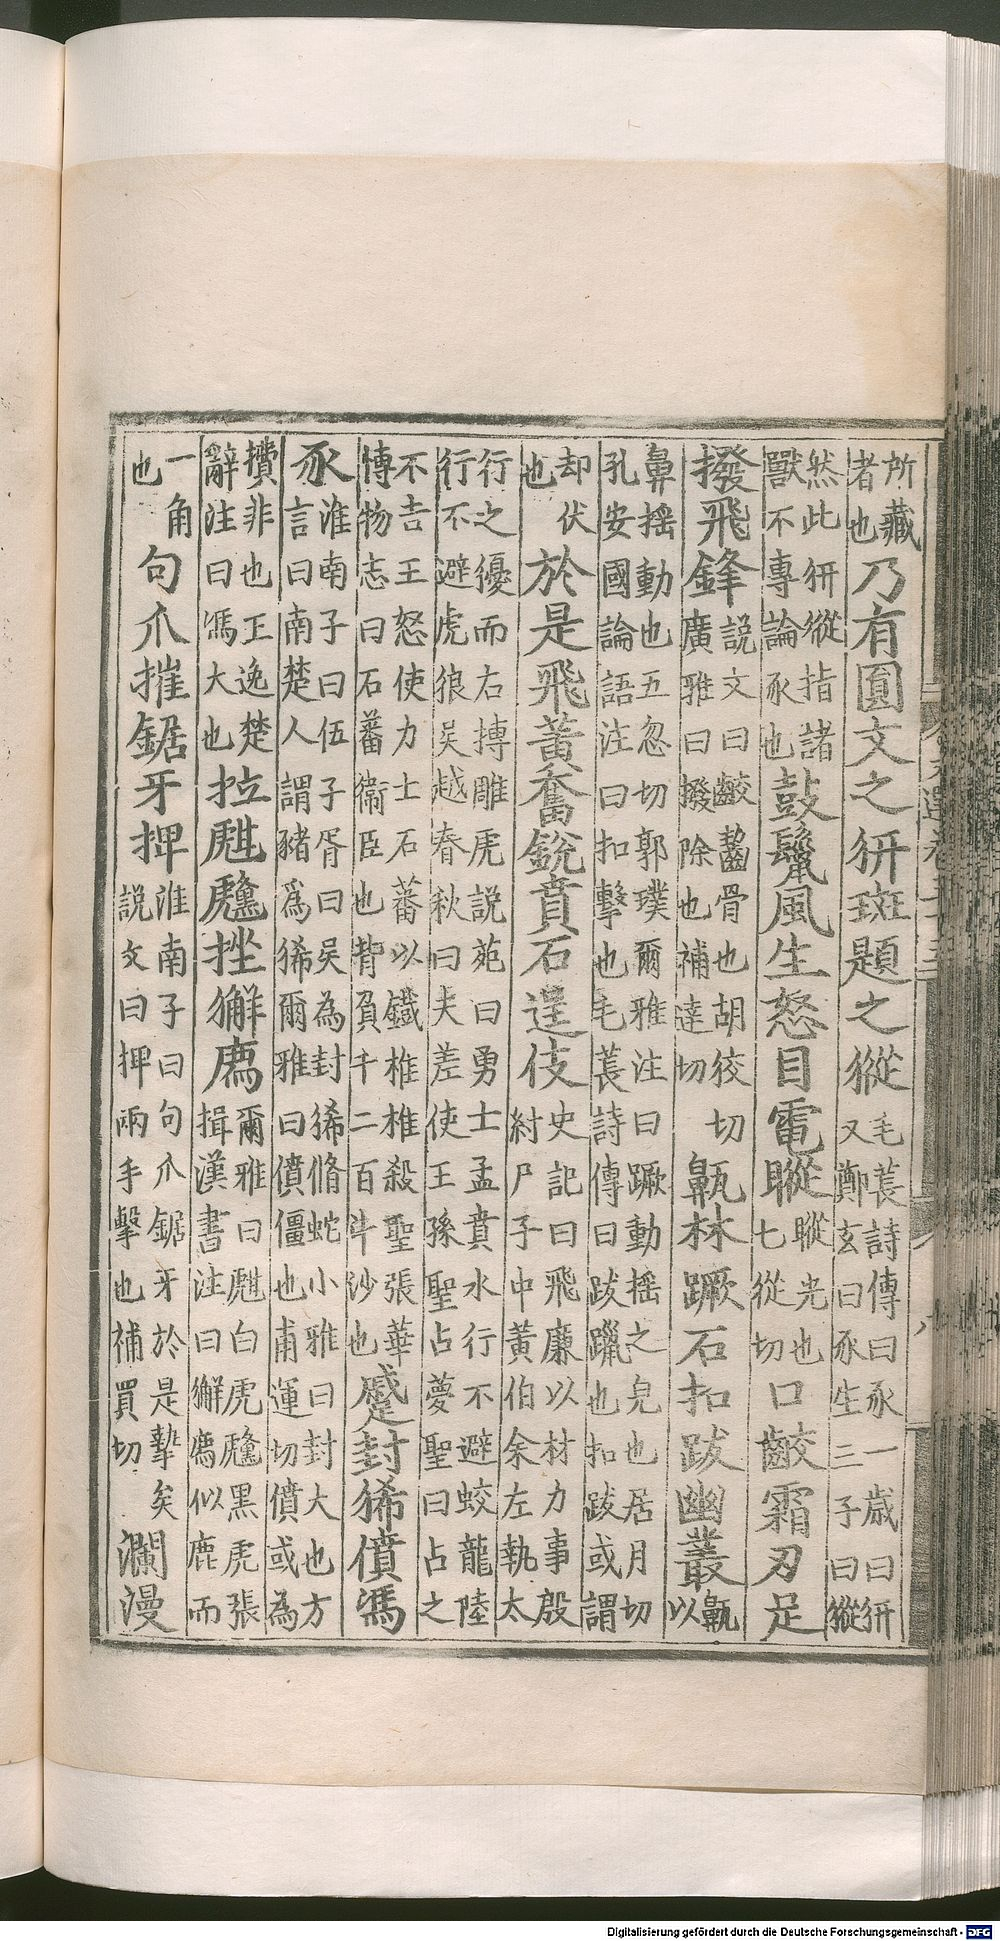 所藏者也乃有圓文之豜斑題之豵毛萇詩傳曰豕一歲曰豜又鄭玄曰豕生三子曰豵
然此豜豵指諸獸不專論豕也鼓鬣風生怒目電瞛瞛光也七從切口齩霜刃足
撥飛鋒說文曰齩齧骨也胡狡切廣雅曰撥除也補達切鼿林蹶石扣跋幽叢鼿以
鼻揺動也五忽切郭璞爾雅注曰蹶動揺之皃也居月切孔安國論語注曰扣擊也毛萇詩傳曰跋躐也扣跋或謂
却伏也於是飛黃奮銳賁石逞伎史記曰飛廉以材力事殷紂尸子中黃伯余左執太
行之獶而右搏雕虎說苑曰勇士孟賁水行不避蛟龍陸行不避虎狼吳越春秋曰夫差使王孫聖占夢聖曰占之
不吉王怒使力士石蕃以鐵椎椎殺聖張華博物志曰石蕃衛臣也背負千二百斗沙也蹙封狶僨馮
豕淮南子曰伍子胥曰吳為封狶脩蛇小雅曰封大也方言曰南楚人謂豬爲狶爾雅曰僨僵也甫運切僨或為
攢非也王逸楚辭注曰馮大也拉甝虪挫獬廌爾雅曰甝白虎虪黑虎張揖漢書注曰獬廌似鹿而
一角也句爪摧鋸牙捭淮南子曰句爪鋸牙於是摯矣說文曰捭兩手擊也補買切瀾漫
Digitalisierung gefördert durch die Deutsche Forschungsgemeinschaft - DFG